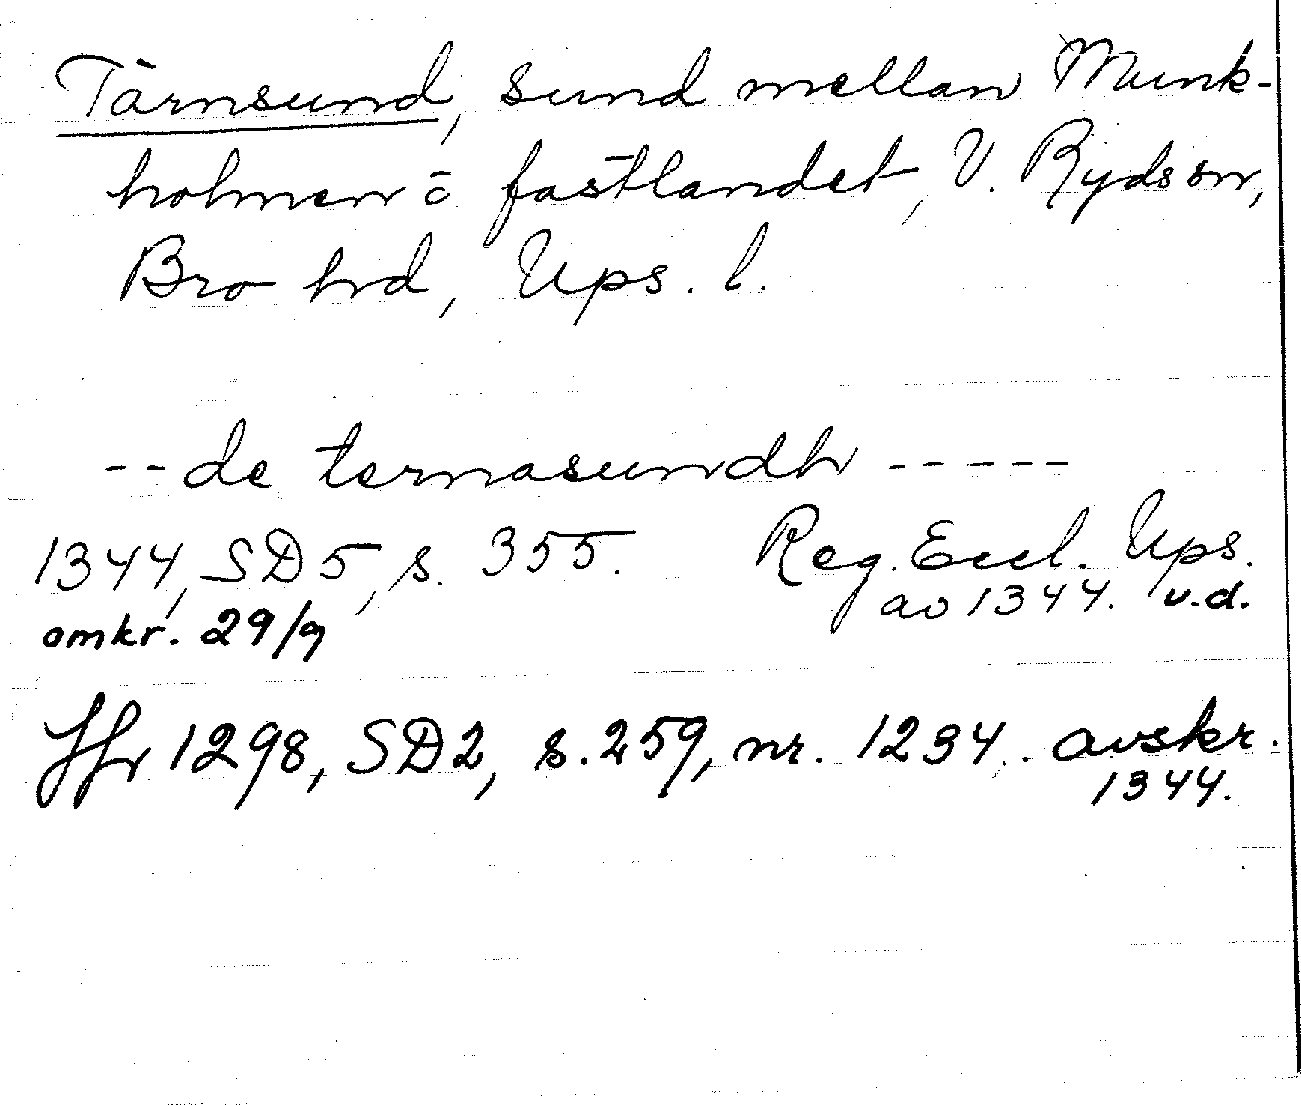 Tärnsund, sund mellan Munk-
holmen o fastlandet, V. Ryds sn,
Bro hd, Ups. l.
--de ternasundh -----
1344, SD5, s. 355. Reg. Eccl. Ups.
omkr. 29/9 av 1344. u.d.
Jfr 1298, SD2, s. 259, nr. 1234. avskr.
1344.